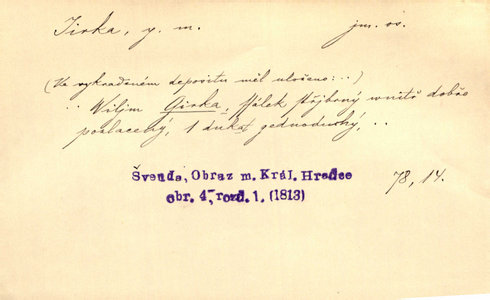 Jirka, y. m. jm. os.
(Ve vykradeném depositu měl uloženo: ..)
.. Wilím Girka, šálek stříbrný vnitř dobře
pozlacený, 1 dukat jednoduchý, ..
Švenda, Obraz m. Král. Hradce 78, 14.
obr. 4, rozd. 1. (1813)